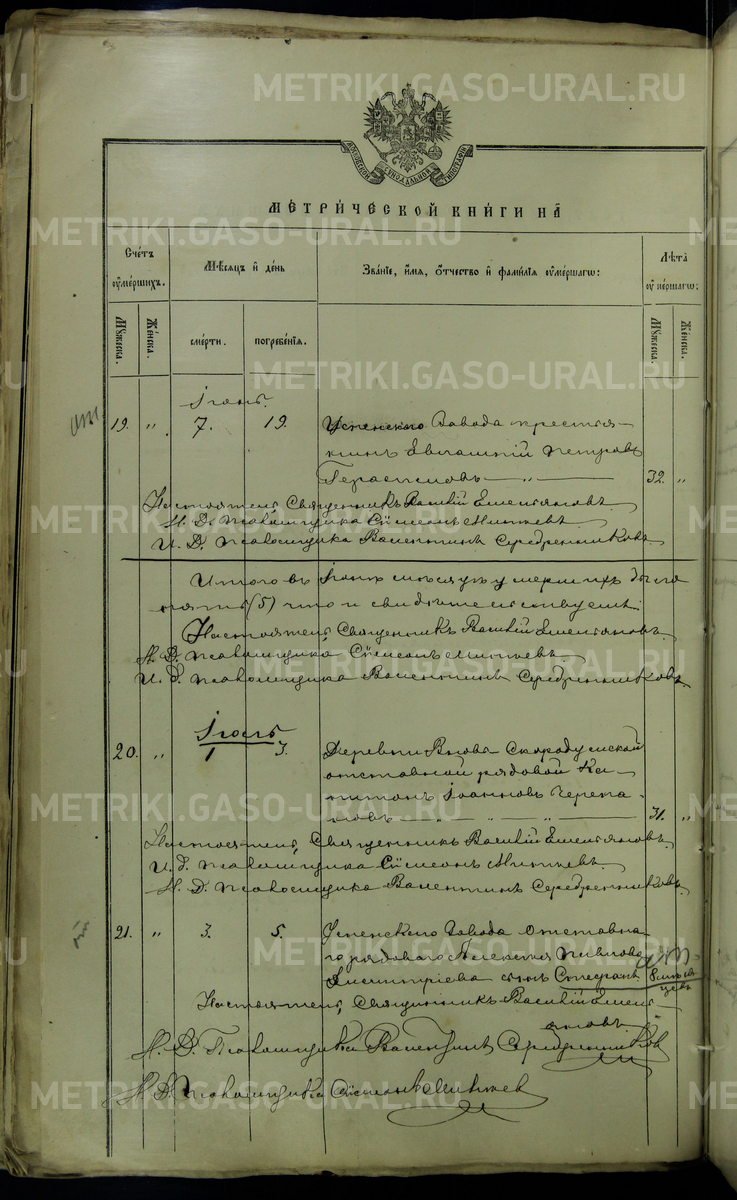 METRIKI.GASO-URAL.RU
МОСКОВСКОЙ СѴНОДАЛЬНОЙ ТИПОГРАФІИ
МЕТРИ́ЧЕСКОЙ КНИ́ГИ НА̀
Сче́тъ ᲂуме́ршихъ.
Мѣ́сяцъ и де́нь
Зва́ніе, и́мя, ѻ҆́тчество и фами́лія ᲂуме́ршагѡ:
Лѣта̀ ᲂуме́ршагѡ:
Мꙋ́жеска.
Же́нска.
сме́рти.
погребе́нія.
Мꙋ́жеска.
Же́нска.
Іюнь.
19. " 7. 19. Успенскаго Завода крестья-
нинъ Евлампій Петровъ
Герасимовъ — " — 32. "
Настоятель, Священникъ Василій Емельяновъ.
И. Д. Псаломщика Сѵмеонъ
И. Д. Псаломщика Валентинъ Серебренниковъ.
Итого въ Іюнѣ мѣсяцѣ умершихъ было
пять (5) что и свидѣтельствуемъ:
Настоятель, Священникъ Василій Емельяновъ.
И. Д. Псаломщика Сѵмеонъ
И. Д. Псаломщика Валентинъ Серебренниковъ.
Іюль
20. " 1 3. Деревни Вновь-Скородумской
отставной рядовой Ка-
питонъ Іоанновъ Черепа-
новъ — " — " — " — 31. "
Настоятель, Священникъ Василій Емельяновъ.
И. д. псаломщика Сѵмеонъ
И. Д. Псаломщика Валентинъ Серебренниковъ.
21. " 3. 5. Успенскаго Завода отставна-
го рядоваго Алексія Павлова
Димитріева сынъ Стефанъ
Настоятель, Священникъ Василій Емель-
яновъ.
И. Д. Псаломщика Валентинъ Серебренниковъ
И. Д. Псаломщика Сѵмеонъ